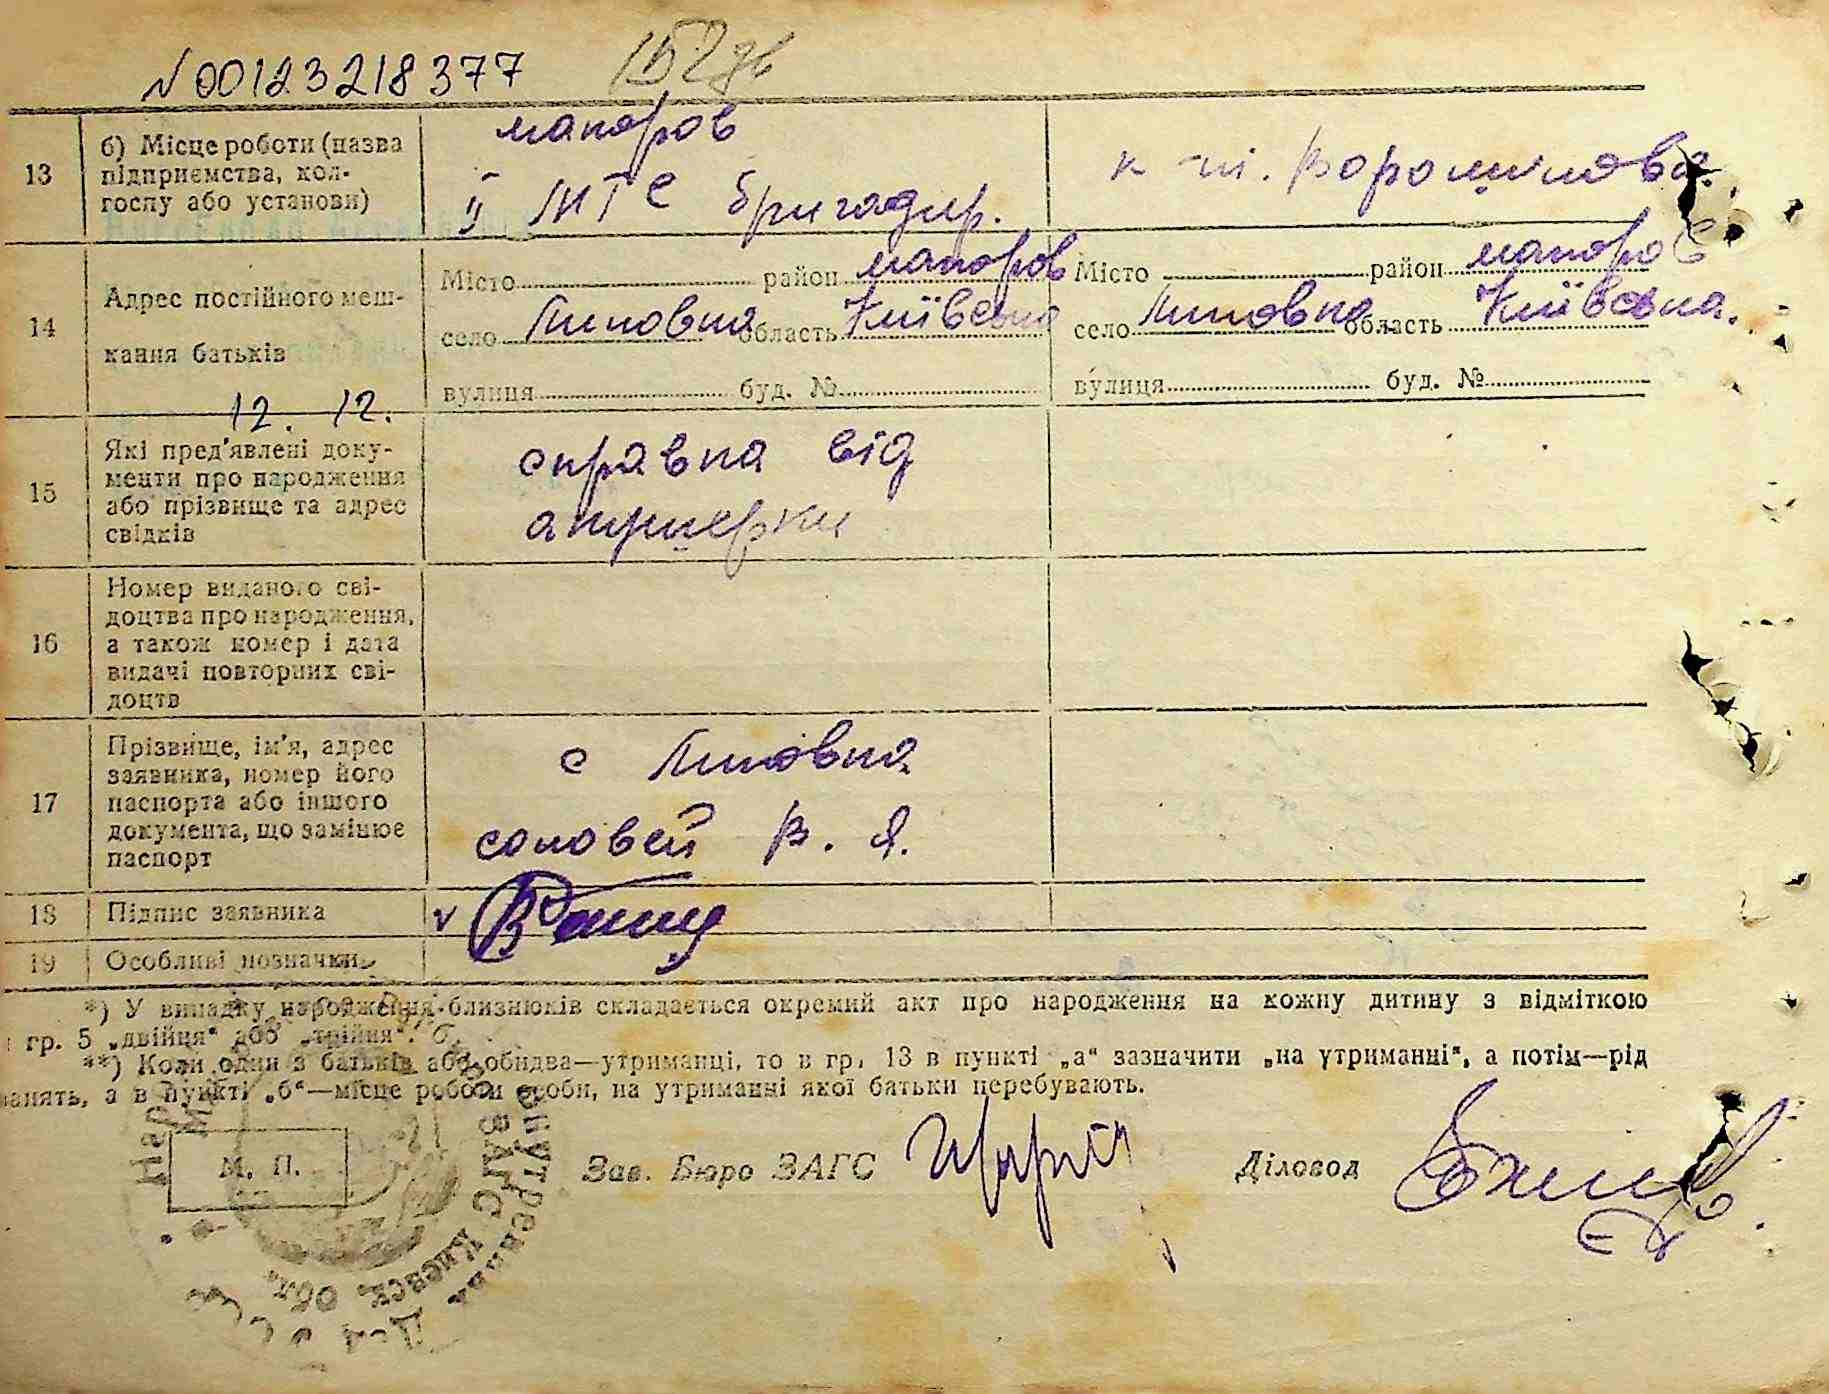 N00123218377
13
б) Місце роботи (назва підприємства, колгоспу або установи)
макаров
II МТС бригадир.
к-т. Ворошилова.
14
Адрес постійного мешкання батьків
Місто район макаров
село Липовка область Київська
вулиця буд. №
Місто район макаров
село Липовка область Київська.
вулиця буд. №
12. 12.
15
Які пред'явлені документи про народження або прізвище та адрес свідків
справка від
акушерки
16
Номер виданого свідоцтва про народження, а також номер і дата видачі повторних свідоцтв
17
Прізвище, ім'я, адрес заявника, номер його паспорта або іншого документа, що замінює паспорт
с Липовка
соловей В. Я.
18
Підпис заявника
v
19
Особливі позначки
*) У випадку народження близнюків складається окремий акт про народження на кожну дитину з відміткою
гр. 5 „двійня“ або „трійня“.
**) Коли один з батьків або обидва—утриманці, то в гр. 13 в пункті „а“ зазначити „на утриманні“, а потім—рід
занять, а в пункті „б“—місце роботи особи, на утриманні якої батьки перебувають.
М. П.
Зав. Бюро ЗАГС
Діловод
ЗАГС Киевск. Обл.